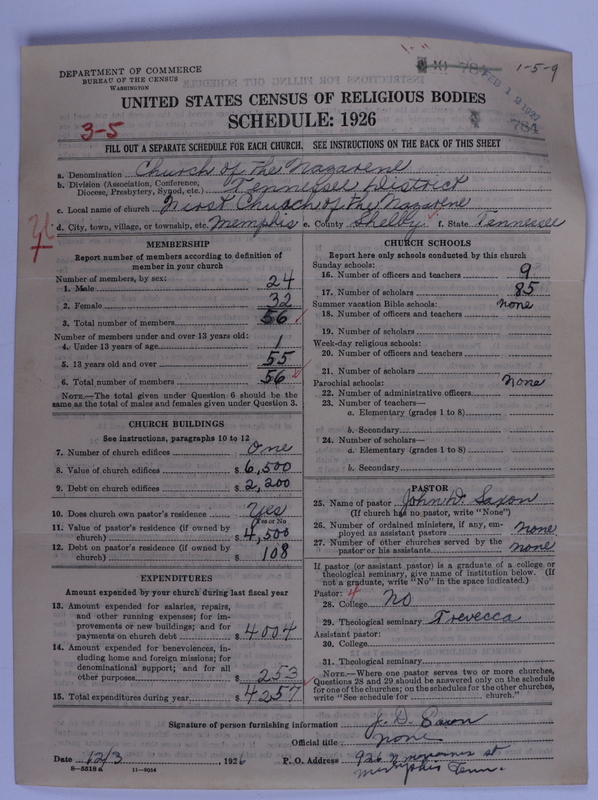 1-5-9
784
FEB 12 1927
784
DEPARTMENT OF COMMERCE
BUREAU OF THE CENSUS
WASHINGTON
UNITED STATES CENSUS OF RELIGIOUS BODIES
SCHEDULE: 1926
3-5
FILL OUT A SEPARATE SCHEDULE FOR EACH CHURCH. SEE INSTRUCTIONS ON THE BACK OF THIS SHEET
a. Denomination Church of the Nazarene
b. Division (Association, Conference, Diocese, Presbytery, Synod, etc.) Tennessee District
c. Local name of church First Church of the Nazarene
d. City, town, village, or township, etc. Memphis e. County Shelby f. State Tennessee
MEMBERSHIP
Report number of members according to definition of
member in your church
Number of members, by sex:
1. Male 24
2. Female 32
3. Total number of members 56
Number of members under and over 13 years old:
4. Under 13 years of age 1
5. 13 years old and over 55
6. Total number of members 56
NOTE.—The total given under Question 6 should be the
same as the total of males and females given under Question 3.
CHURCH BUILDINGS
See instructions, paragraphs 10 to 12
7. Number of church edifices One
8. Value of church edifices $ 6,500
9. Debt on church edifices $ 2,200
10. Does church own pastor's residence Yes
Yes or No
11. Value of pastor's residence (if owned by
church) $ 4,500
12. Debt on pastor's residence (if owned by
church) $ 108
EXPENDITURES
Amount expended by your church during last fiscal year
13. Amount expended for salaries, repairs,
and other running expenses; for im-
provements or new buildings; and for
payments on church debt $ 4004
14. Amount expended for benevolences, in-
cluding home and foreign missions; for
denominational support; and for all
other purposes $ 253
15. Total expenditures during year $ 4257
CHURCH SCHOOLS
Report here only schools conducted by this church
Sunday schools:
16. Number of officers and teachers 9
17. Number of scholars 85
Summer vacation Bible schools: None
18. Number of officers and teachers
19. Number of scholars
Week-day religious schools:
20. Number of officers and teachers
21. Number of scholars
Parochial schools: None
22. Number of administrative officers
23. Number of teachers—
a. Elementary (grades 1 to 8)
b. Secondary
24. Number of scholars—
a. Elementary (grades 1 to 8)
b. Secondary
PASTOR
25. Name of pastor John D. Saxon
(If church has no pastor, write "None")
26. Number of ordained ministers, if any, em-
ployed as assistant pastors None
27. Number of other churches served by the
pastor or his assistants None
If pastor (or assistant pastor) is a graduate of a college or
theological seminary, give name of institution below. (If
not a graduate, write "No" in the space indicated.)
Pastor:
28. College No
29. Theological seminary Trevecca
Assistant pastor:
30. College
31. Theological seminary
NOTE.—Where one pastor serves two or more churches,
Questions 28 and 29 should be answered only on the schedule
for one of the churches; on the schedules for the other churches,
write "See schedule for church."
Signature of person furnishing information J. D. Saxon
Official title none
Date 12/3, 1926 P. O. Address 926 N st
Memphis Tenn.
8—5518 a 11—9054